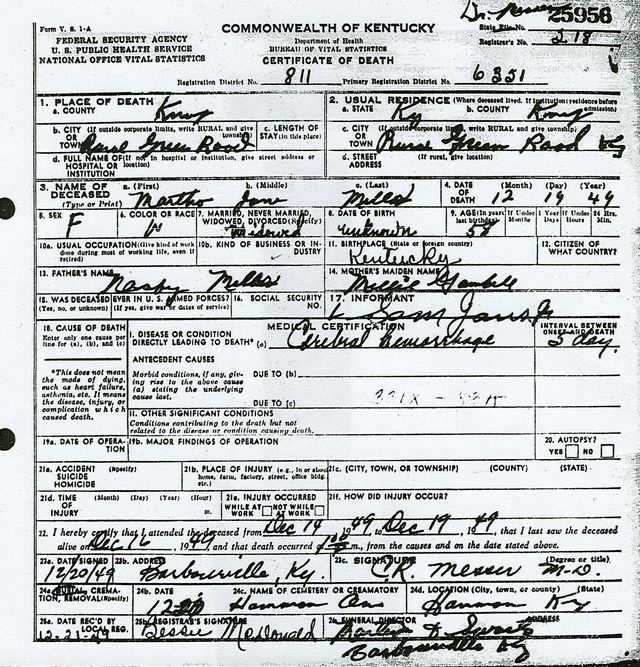 Form V. S. 1-A
FEDERAL SECURITY AGENCY
U. S. PUBLIC HEALTH SERVICE
NATIONAL OFFICE VITAL STATISTICS
COMMONWEALTH OF KENTUCKY
Department of Health
BUREAU OF VITAL STATISTICS
CERTIFICATE OF DEATH
State File No. 25956
Registrar's No. 218
Registration District No. 811 Primary Registration District No. 6351
1. PLACE OF DEATH
a. COUNTY Knox
2. USUAL RESIDENCE (Where deceased lived. If institution: residence before admission)
a. STATE Ky b. COUNTY Knox
b. CITY (If outside corporate limits, write RURAL and give township)
OR TOWN Rural Green Road
c. LENGTH OF STAY (in this place)
c. CITY (If outside corporate limits, write RURAL and give township)
OR TOWN Rural Green Road Ky
d. FULL NAME OF (If not in hospital or institution, give street address or location)
HOSPITAL OR INSTITUTION
d. STREET ADDRESS (If rural, give location)
3. NAME OF DECEASED (Type or Print)
a. (First) Martha b. (Middle) Jane c. (Last) Mills
4. DATE OF DEATH (Month) (Day) (Year) 12 19 49
5. SEX F
6. COLOR OR RACE W
7. MARRIED, NEVER MARRIED, WIDOWED, DIVORCED (Specify) Widowed
8. DATE OF BIRTH unknown
9. AGE (In years last birthday) 58 If Under 1 Year Months Days If Under 24 Hrs. Hours Min.
10a. USUAL OCCUPATION (Give kind of work done during most of working life, even if retired)
10b. KIND OF BUSINESS OR INDUSTRY
11. BIRTHPLACE (State or foreign country) Kentucky
12. CITIZEN OF WHAT COUNTRY?
13. FATHER'S NAME Mills
14. MOTHER'S MAIDEN NAME Millie Gambell
15. WAS DECEASED EVER IN U. S. ARMED FORCES? (Yes, no, or unknown) (If yes, give war or dates of service)
16. SOCIAL SECURITY NO.
17. INFORMANT Sam
18. CAUSE OF DEATH
Enter only one cause per line for (a), (b), and (c)
*This does not mean the mode of dying, such as heart failure, asthenia, etc. It means the disease, injury, or complication which caused death.
MEDICAL CERTIFICATION
INTERVAL BETWEEN ONSET AND DEATH
I. DISEASE OR CONDITION DIRECTLY LEADING TO DEATH* (a) Cerebral Hemorrhage 5 day.
ANTECEDENT CAUSES
Morbid conditions, if any, giving rise to the above cause (a) stating the underlying cause last.
DUE TO (b)
DUE TO (c) 331X
II. OTHER SIGNIFICANT CONDITIONS
Conditions contributing to the death but not related to the disease or condition causing death.
19a. DATE OF OPERATION
19b. MAJOR FINDINGS OF OPERATION
20. AUTOPSY? YES NO
21a. ACCIDENT SUICIDE HOMICIDE (Specify)
21b. PLACE OF INJURY (e.g., in or about home, farm, factory, street, office bldg. etc.)
21c. (CITY, TOWN, OR TOWNSHIP) (COUNTY) (STATE)
21d. TIME OF INJURY (Month) (Day) (Year) (Hour) m.
21e. INJURY OCCURRED WHILE AT WORK NOT WHILE AT WORK
21f. HOW DID INJURY OCCUR?
22. I hereby certify that I attended the deceased from Dec 14, 1949 to Dec 19, 1949, that I last saw the deceased
alive on Dec 16, 1949, and that death occurred at m., from the causes and on the date stated above.
23a. DATE SIGNED 12/20/49
23b. ADDRESS Barbourville, Ky.
23c. SIGNATURE (Degree or title) C.R. Messer M-D.
24a. BURIAL, CREMATION, REMOVAL (Specify)
24b. DATE
24c. NAME OF CEMETERY OR CREMATORY Hammon Cem
24d. LOCATION (City, town, or county) (State) Hammon Ky
25a. DATE REC'D BY LOCAL REG. 12-21-49
25b. REGISTRAR'S SIGNATURE Bessie McDonald
26. FUNERAL DIRECTOR ADDRESS
Barbourville Ky